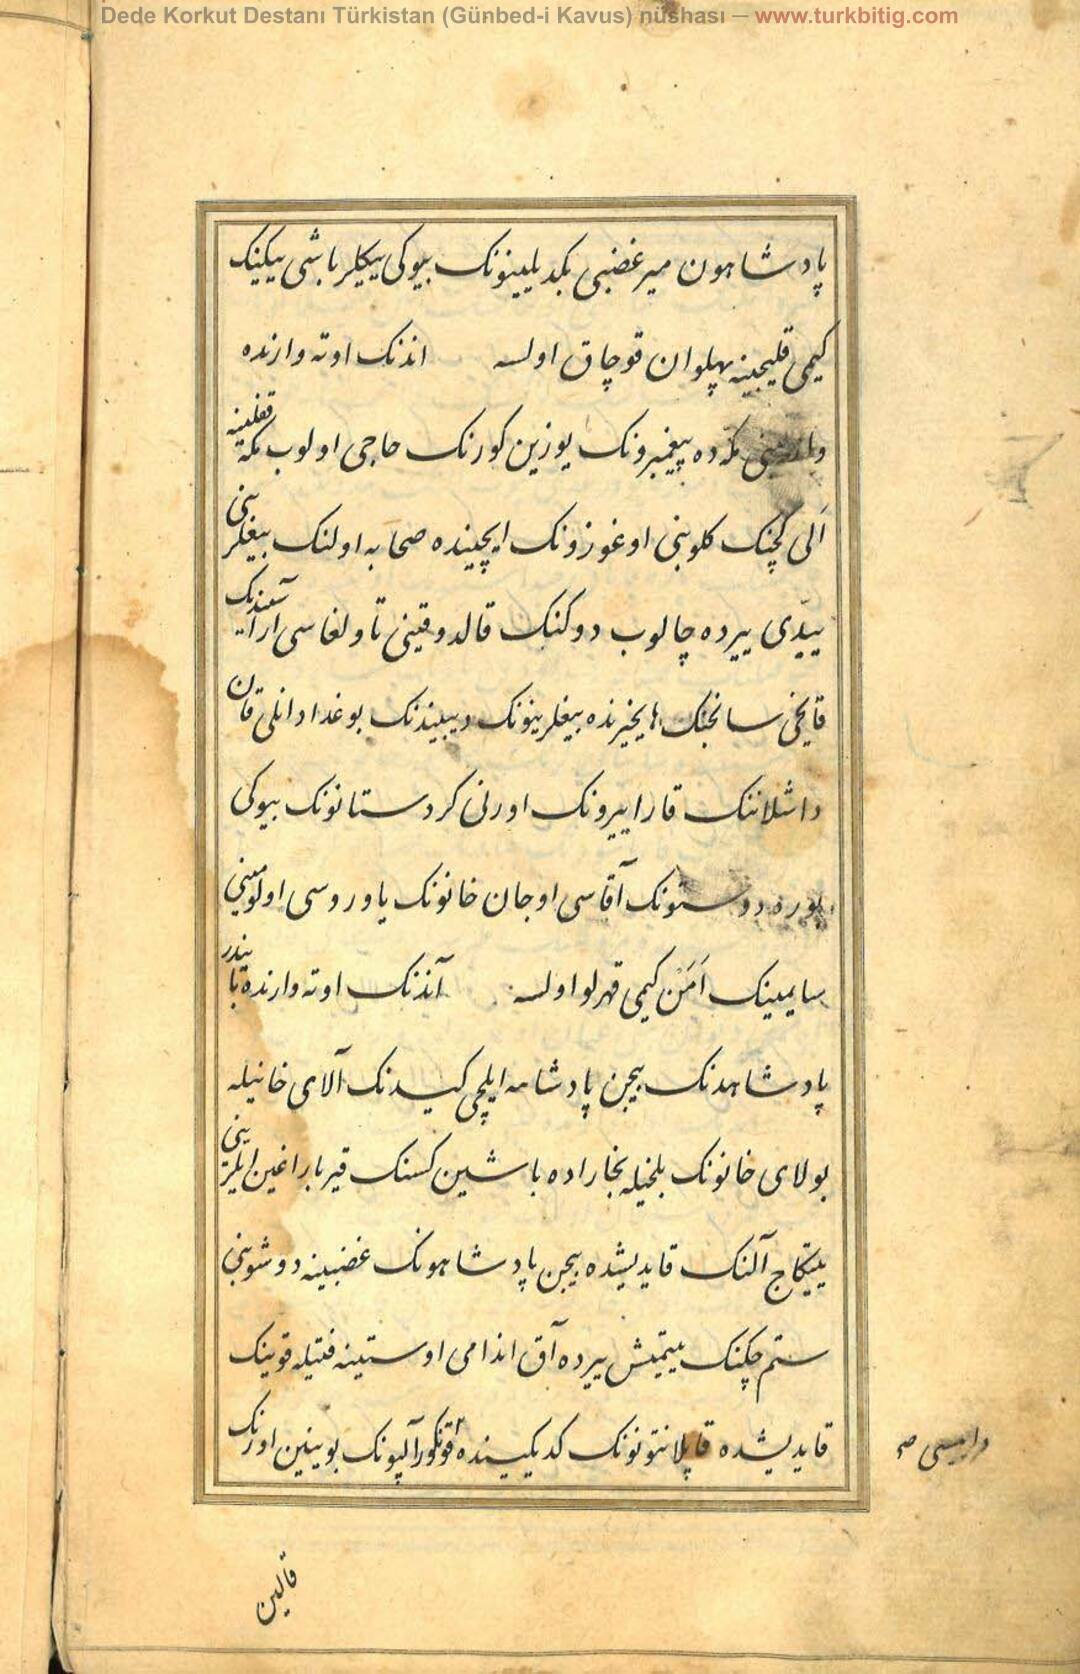 Dede Korkut Destanı Türkistan (Günbed-i Kavus) nüshası — www.turkbitig.com
پادشاهون میر غضبی بکدیلینونک بیوکی بیکلر باشی بیکینک
کیمی قلیجینه پهلوان قوچاق اولسه اندنک اوته وارنده
مکه ده پیغمبرونک یوزین کورنک حاجی اولوب مکه قفلینه
الی کچنک کلوبنی اوغوزونک ایچینده صحابه اولنک بیغلر بنی
ییدی ییرده چالوب دوکنک قالدوقینی تاولغاسی آراسیندنک
قایخی سانجنک هایخیرنده بیغلرینونک دیبیندنک بوغدادانلی قان
داشلاننک قارا ییرونک اورنی کردستانونک بیوکی
دوستونک آقاسی اوجان خانونک یاوروسی اولومینی
سایمینک امن کیمی قهرلو اولسه آندنک اوته وارنده بایندر
پادشاهدنک بیجن پادشاهه ایلچی کیدنک آلای خانیله
بولای خانونک بلخیله بخاراده باشین کسنک قیر باراغین ایلر ینی
ییتیکاج آلنک قایدیشده بیجن پادشاهونک غضبینه دوشوبنی
ستم چکنک ییتمیش ییرده آق اندامی اوستینه فتیله قوینک
قایدیشده قاپلانتونونک کدیکینده آلپونک بوینین اورنک
قالین